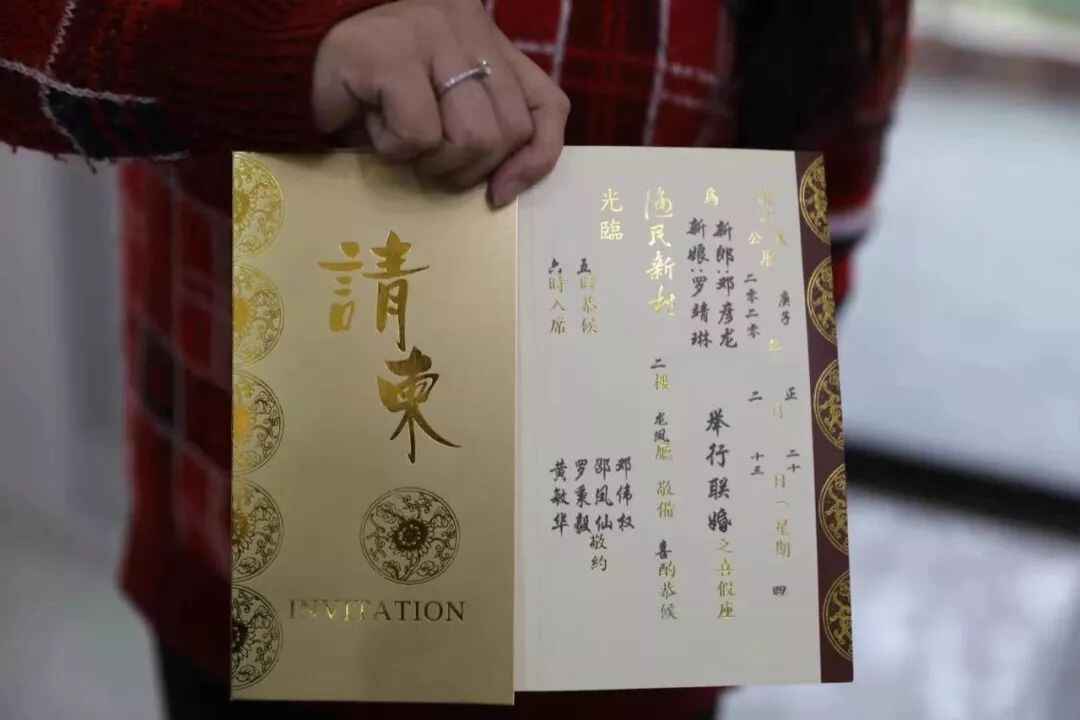 請柬
INVITATION
庚子 正 二十
公曆 二零二零 年 二 月 十三 日(星期 四
爲
新郎:邓彦龙
新娘:罗靖琳
举行联婚之喜假座
渔民新村 二樓 龙凤廳 敬備 喜酌恭候
光臨
五時恭候
六時入席
邓伟权
邵凤仙
罗秉毅
黄敏华
敬約